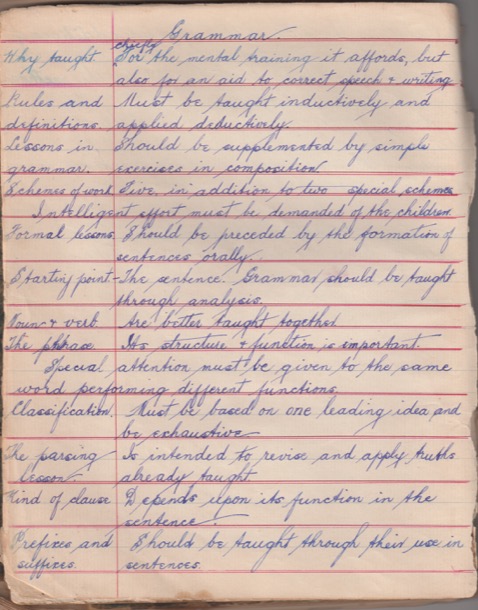 Grammar.
chiefly
Why taught For the mental training it affords, but
also for an aid to correct speech & writing
Rules and Must be taught inductively and
definitions. applied deductively.
Lessons in Should be supplemented by simple
grammar. exercises in composition.
Schemes of work Five, in addition to two special schemes
Intelligent effort must be demanded of the children.
Formal lessons. Should be preceded by the formation of
sentences orally.
Starting point - The sentence. Grammar should be taught
through analysis.
Noun & verb. Are better taught together.
The phrase. Its structure & function is important.
Special attention must be given to the same
word performing different functions.
Classification. Must be based on one leading idea and
be exhaustive.
The parsing Is intended to revise and apply truths
lesson. already taught.
Kind of clause Depends upon its function in the
sentence.
Prefixes and Should be taught through their use in
suffixes. sentences.